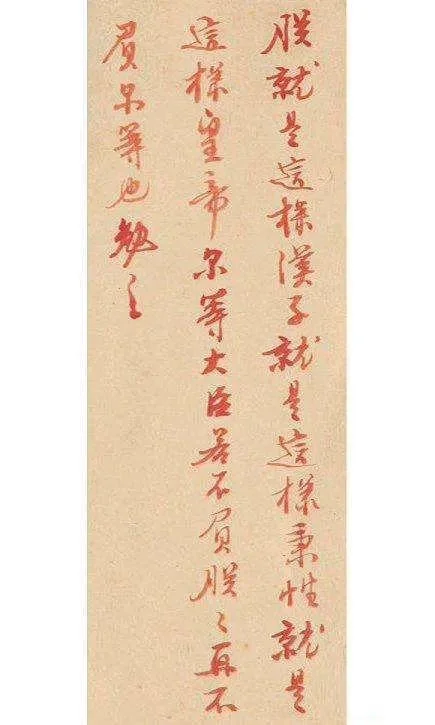 朕就是這樣漢子就是這樣秉性就是
這樣皇帝尔等大臣若不負朕〻再不
負尔等也勉之